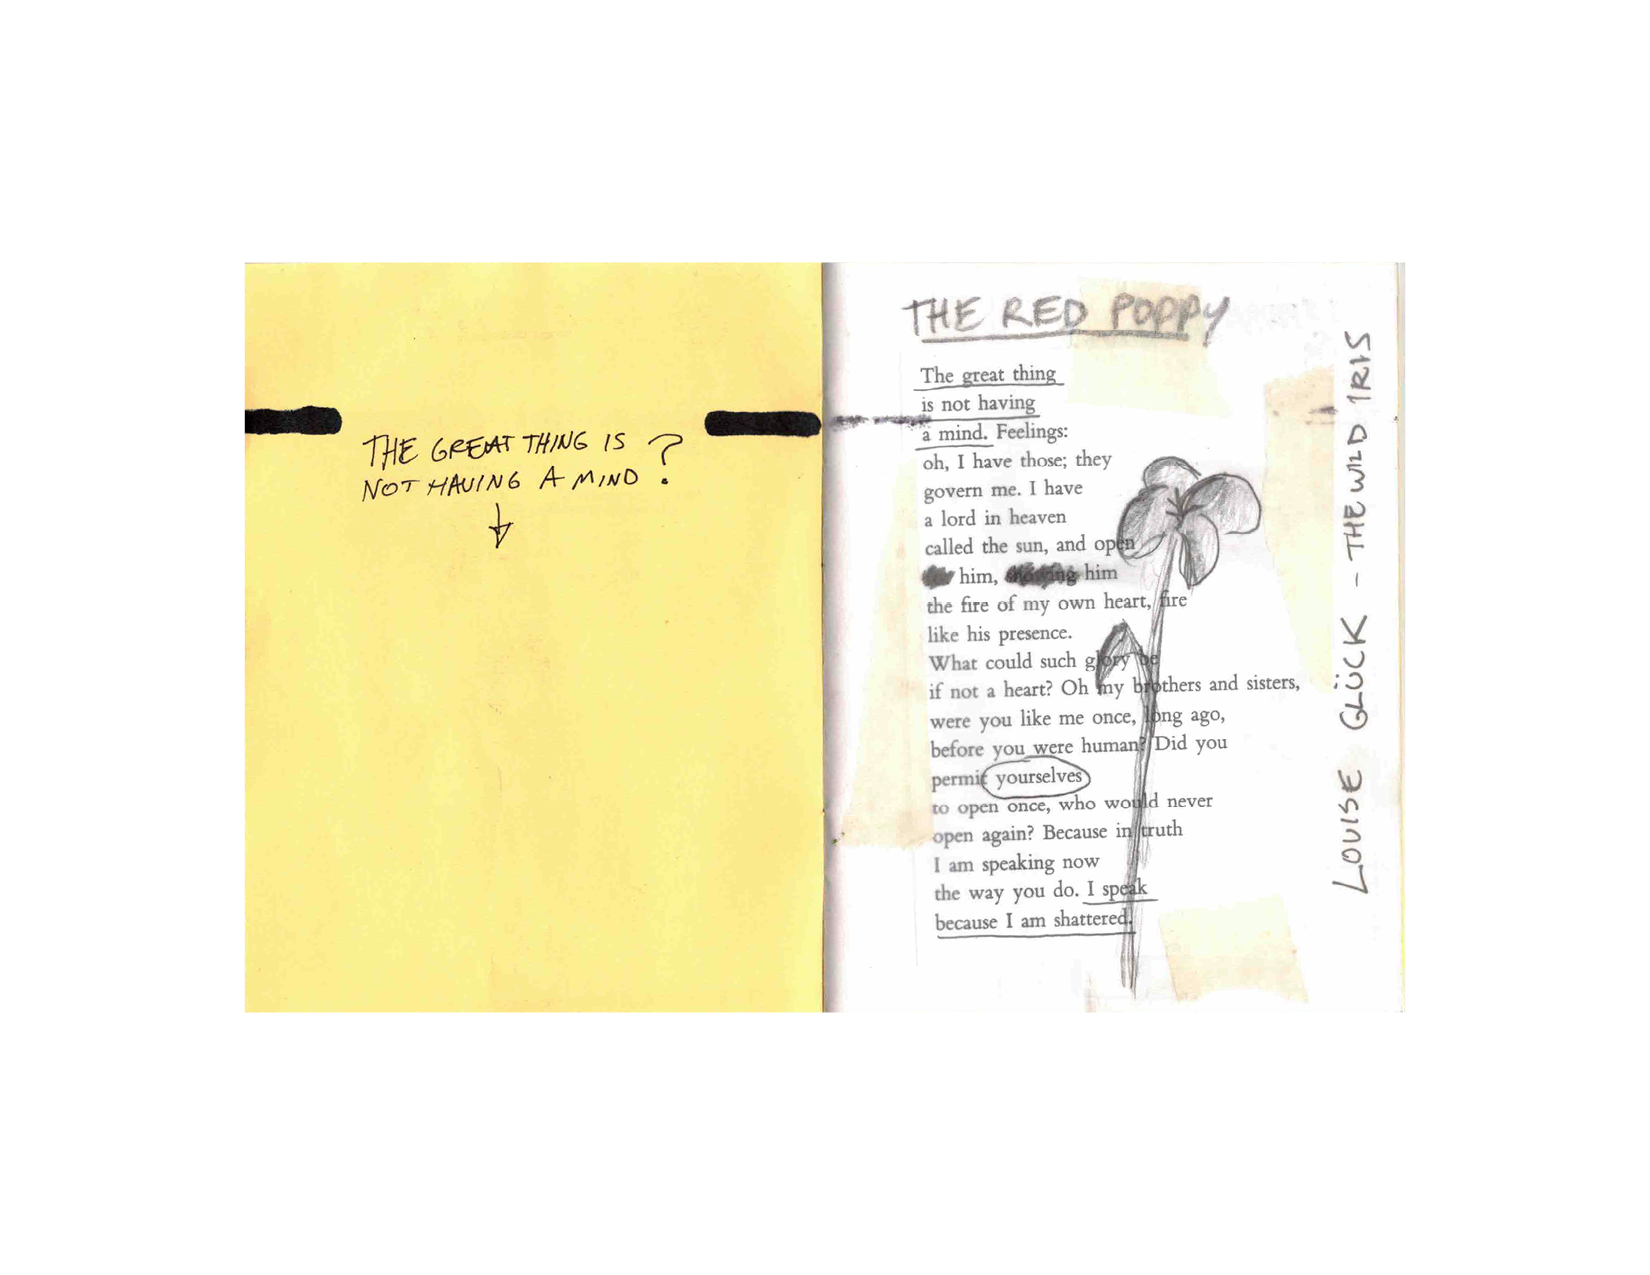 THE GREAT THING IS
NOT HAVING A MIND ?
THE RED POPPY
The great thing
is not having
a mind. Feelings:
oh, I have those; they
govern me. I have
a lord in heaven
called the sun, and open
him, him
the fire of my own heart, fire
like his presence.
What could such glory be
if not a heart? Oh my brothers and sisters,
were you like me once, long ago,
before you were human? Did you
permit yourselves
to open once, who would never
open again? Because in truth
I am speaking now
the way you do. I speak
because I am shattered.
LOUISE GLÜCK - THE WILD IRIS